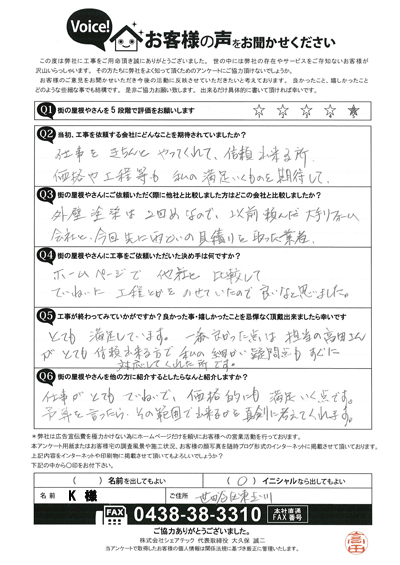 Voice!
お客様の声をお聞かせください
この度は弊社に工事をご用命頂き誠にありがとうございました。世の中には弊社の存在やサービスをご存知ないお客様が
沢山いらっしゃいます。その方たちに弊社をよく知って頂くためのアンケートにご協力頂けないでしょうか。
お客様のご意見をお聞かせいただき今後の活動に反映させていただきたいと考えております。良かったこと、嬉しかったこと
どのような些細な事でも結構です。是非ご協力お願い致します。出来るだけ具体的に書いて頂ければ幸いです。
Q1 街の屋根やさんを5段階で評価をお願いします ☆ ☆ ☆ ☆ ★
Q2 当初、工事を依頼する会社にどんなことを期待されていましたか?
仕事をきちんとやってくれて、信頼出来る所.
価格や工程等も私の満足いくものを期待して.
Q3 街の屋根やさんにご依頼いただく際に他社と比較しました方はどこの会社と比較しましたか?
外壁塗装は2回めなので、以前頼んだ大手リフォーム
会社と、今回先に雨といの見積りを取った業者.
Q4 街の屋根やさんに工事をご依頼いただいた決め手は何ですか?
ホームページで他社と比較して
ていねいに工程とかをのせていたので良いなと思いました。
Q5 工事が終わってみていかがですか?良かった事・嬉しかったことを忌憚なく頂戴出来ましたら幸いです
とても満足しています。一番良かった点は担当の高田さん
がとても信頼出来る方で私の細かい疑問点もすぐに
対応してくれた所です。
Q6 街の屋根やさんを他の方に紹介するとしたらなんと紹介しますか?
仕事がとてもていねいで、価格的にも満足いく点です。
予算を言ったら、その範囲で出来るかを真剣に考えてくれます。
※弊社は広告宣伝費を極力かけない為にホームページだけを頼りにお客様への営業活動を行っております。
本アンケート用紙またはお客様宅の調査風景や施工状況、お客様の顔写真を随時ブログ形式のインターネットに掲載させて頂いております。
上記内容をインターネットや印刷物に掲載させて頂いてもよろしいでしょうか?
下記の中から〇印をお付下さい。
( ) 名前を出してもよい ( 〇 ) イニシャルなら出してもよい
名前 K 様 ご住所 世田谷区東玉川
FAX 0438-38-3310 本社直通 FAX番号
ご協力ありがとうございました。
株式会社シェアテック 代表取締役 大久保 誠二
当アンケートで取得したお客様の個人情報は関係法規に基づき厳正に管理いたします。
高田